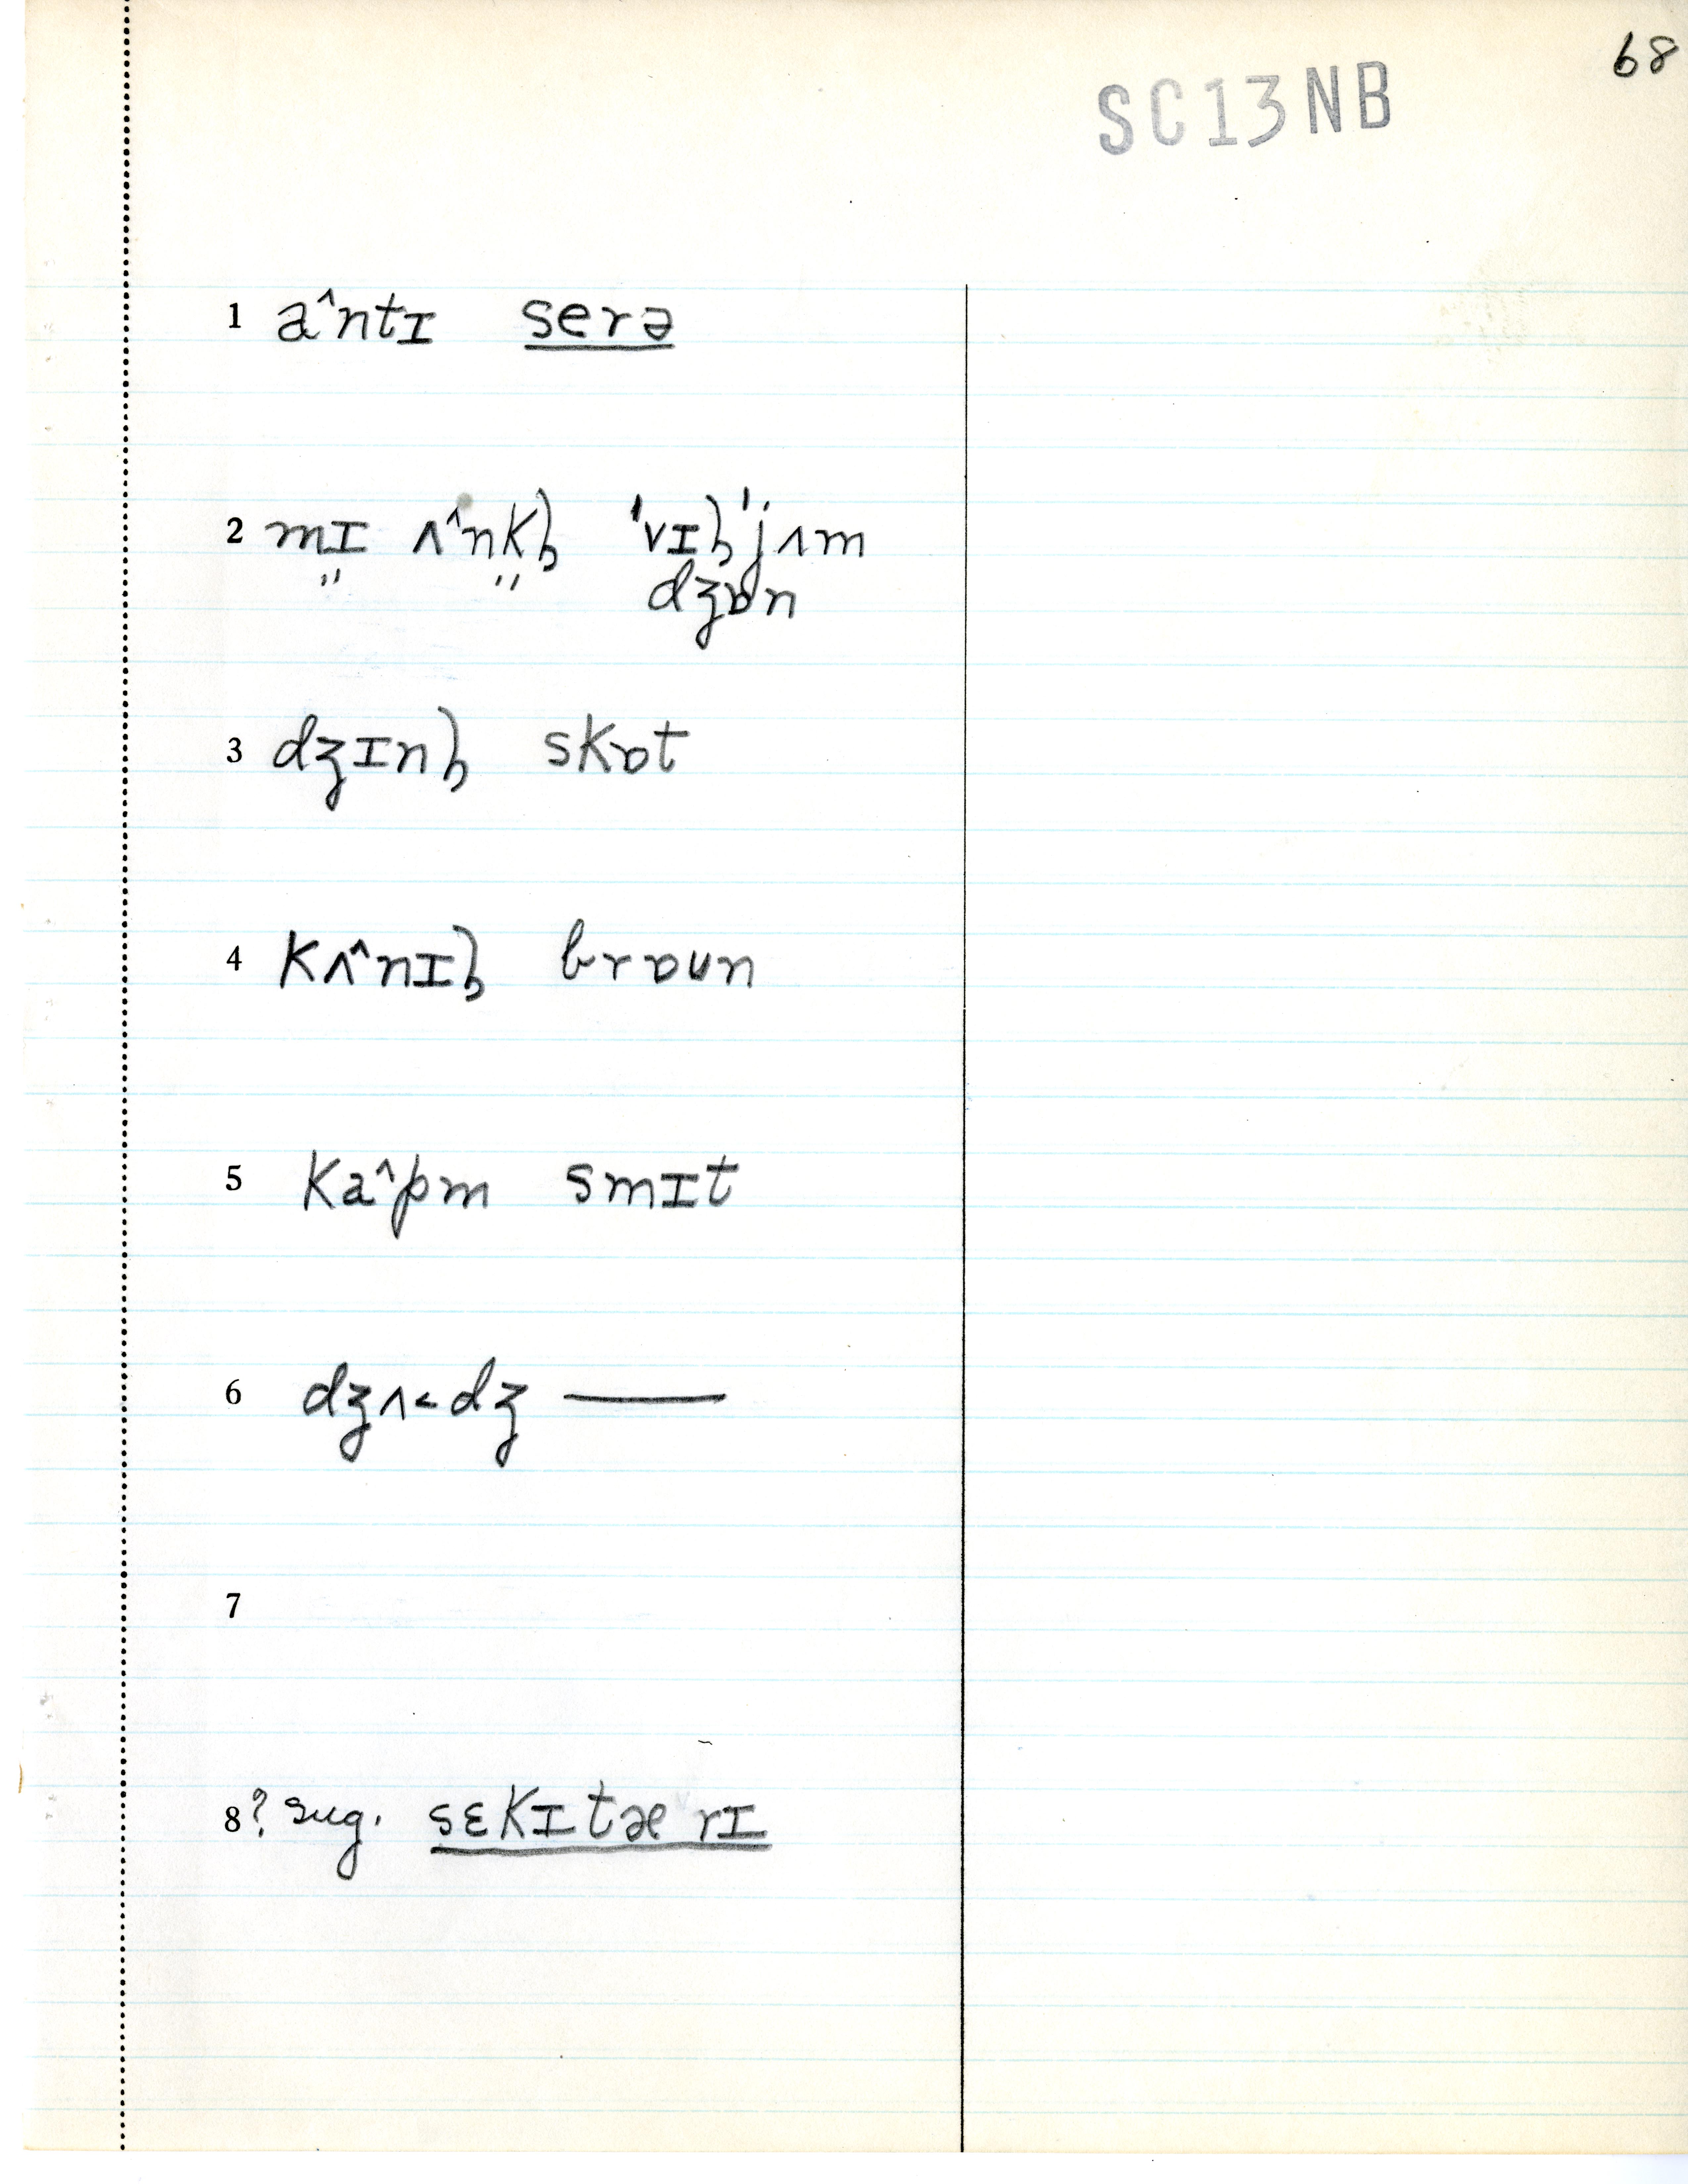 68
SC13NB
1 a^ntɪ serə
2 mɪ ʌ^nkɮ 'vɪɮ'jʌm
" " dʒɒn
3 dʒɪnɮ skɒt
4 kʌ^nɪɮ brɒun
5 ka^pm smɪt
6 dʒʌ˂dʒ —
7
8? sug. sɛkɪtærɪ